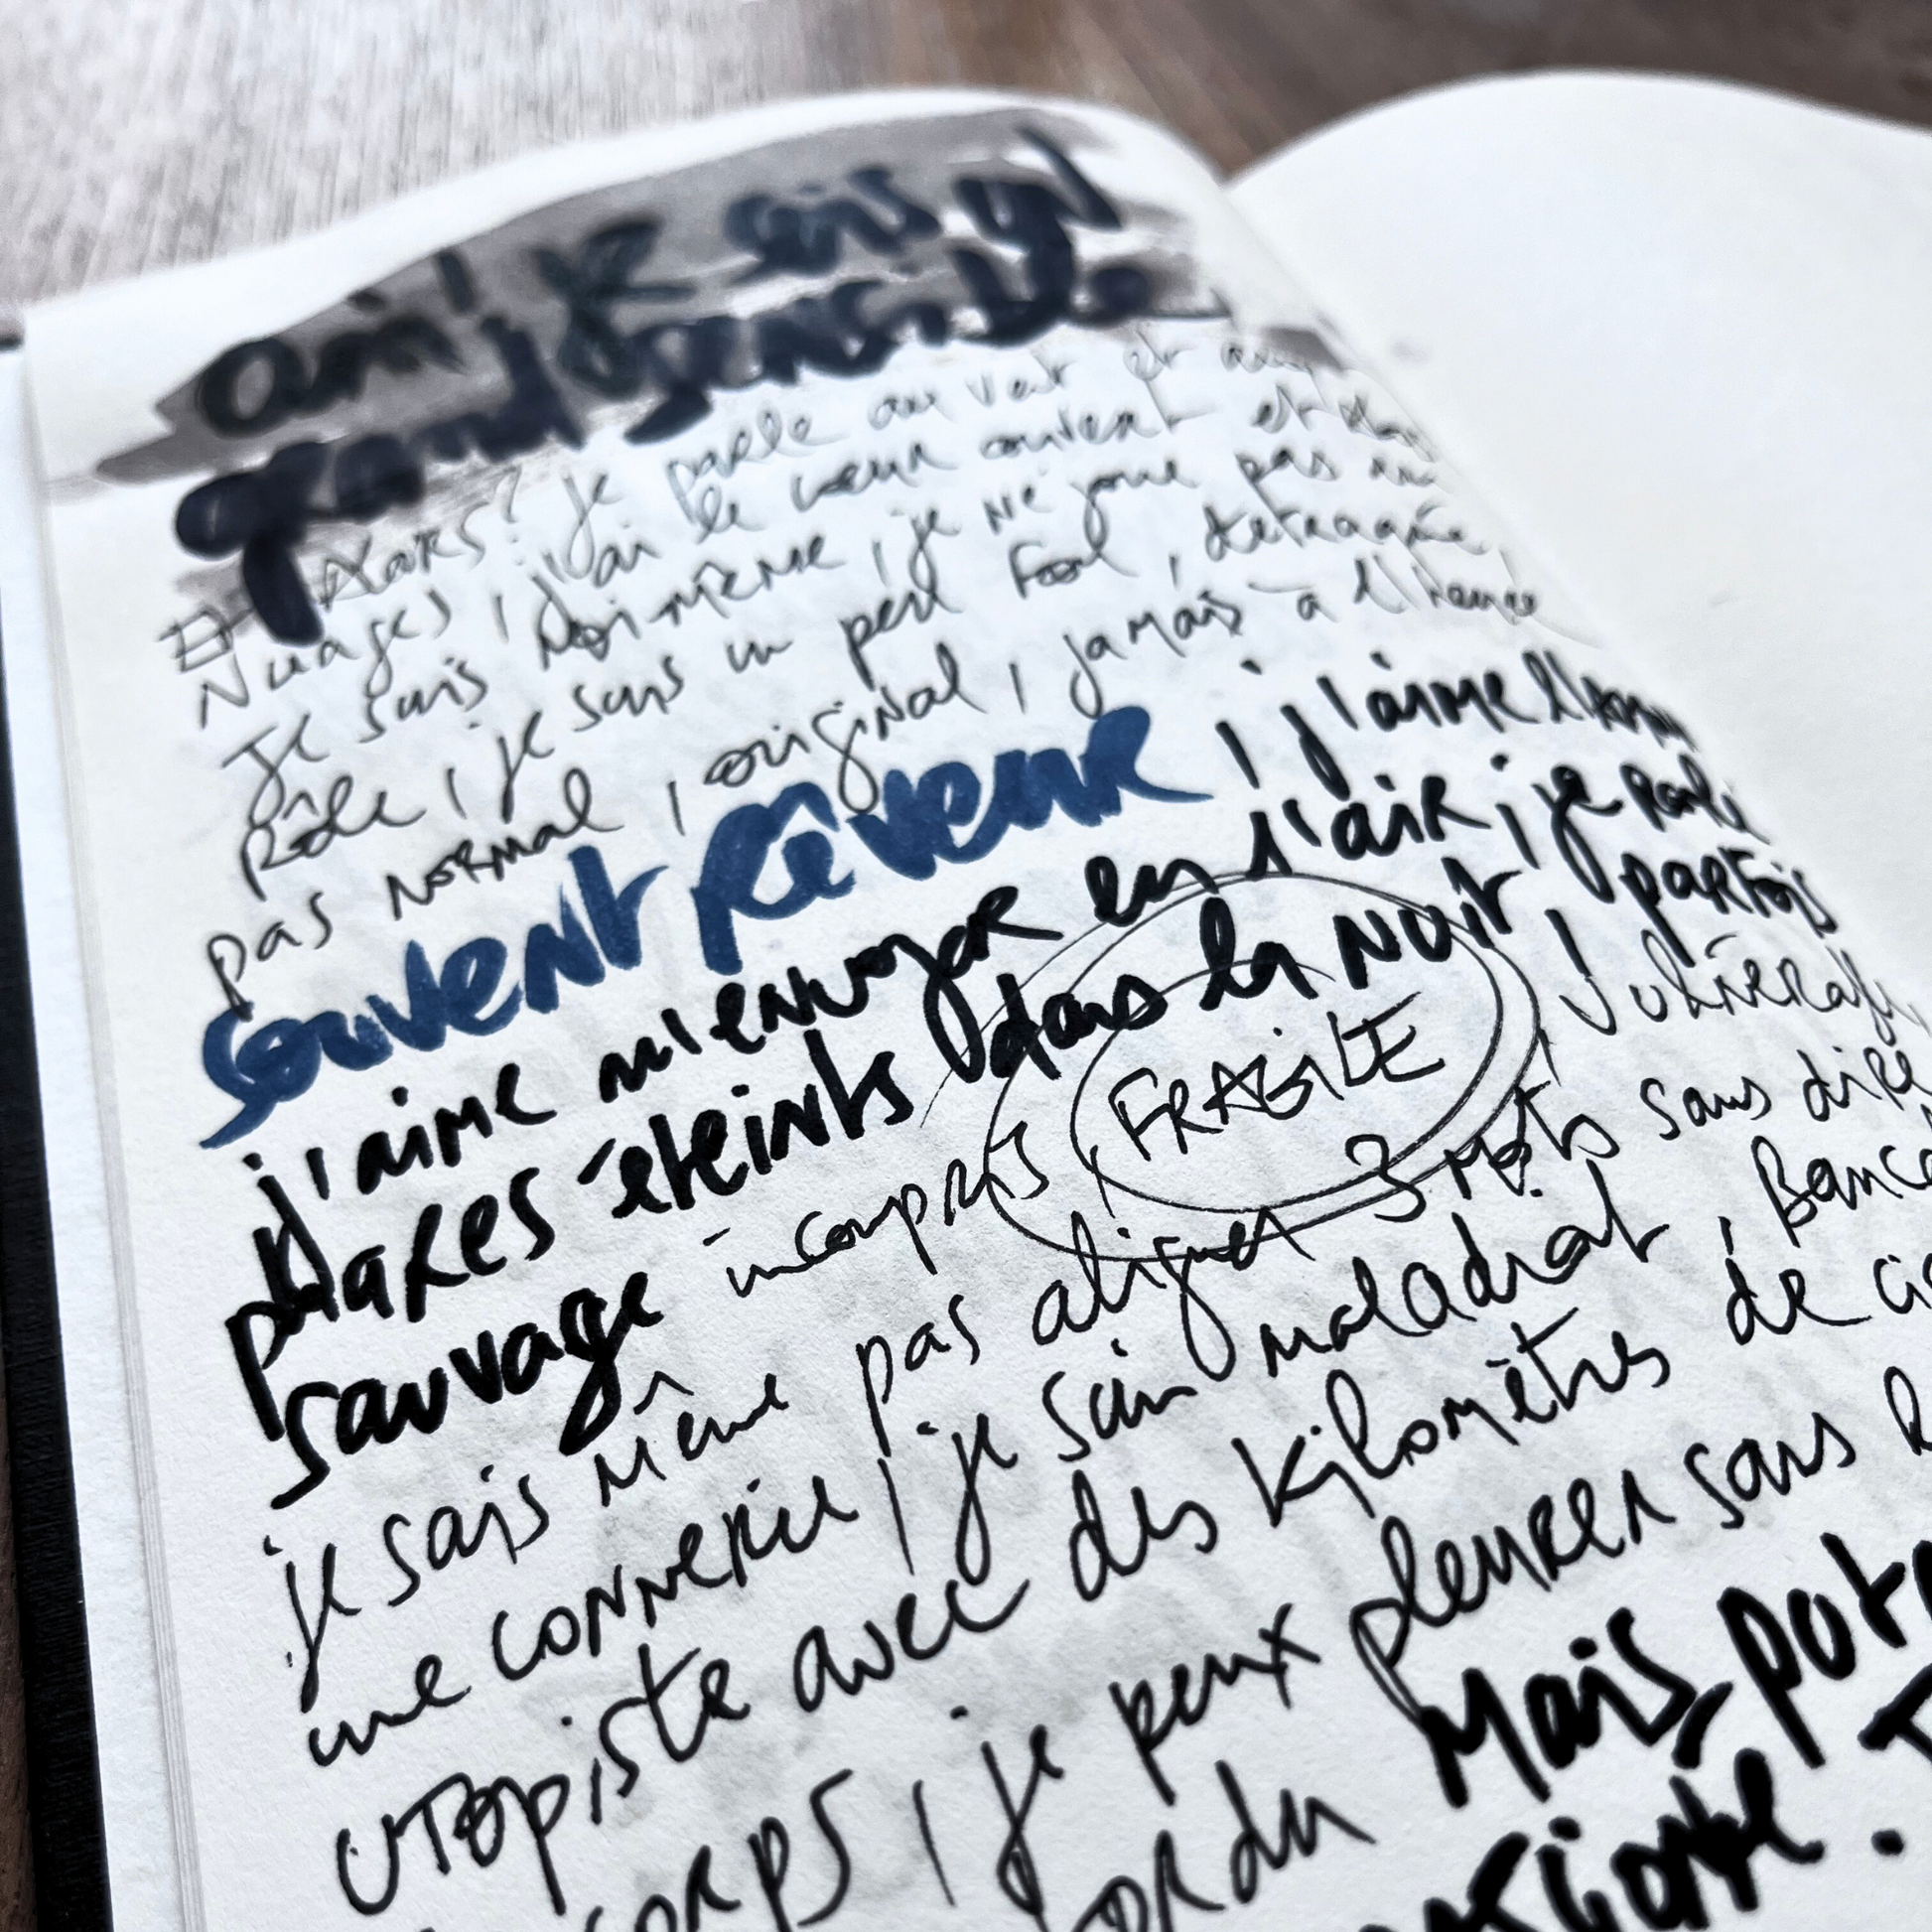 oui je suis un
grand sensible
Et alors? je parle au vent et aux
Nuages, j'ai le cœur ouvert et
Je suis moi-même, je ne joue pas un
Rôle, je suis un peu fou, détraqué,
pas normal, original, jamais à l'heure
souvent rêveur, j'aime l'
j'aime m'envoyer en l'air, je roule
phares éteints dans la nuit, parfois
sauvage incompris, FRAGILE, vulnérable
je sais même pas aligner 3 mots sans dire
une connerie, je suis maladroit,
utopiste avec des kilomètres de
corps, je peux pleurer sans
Mais